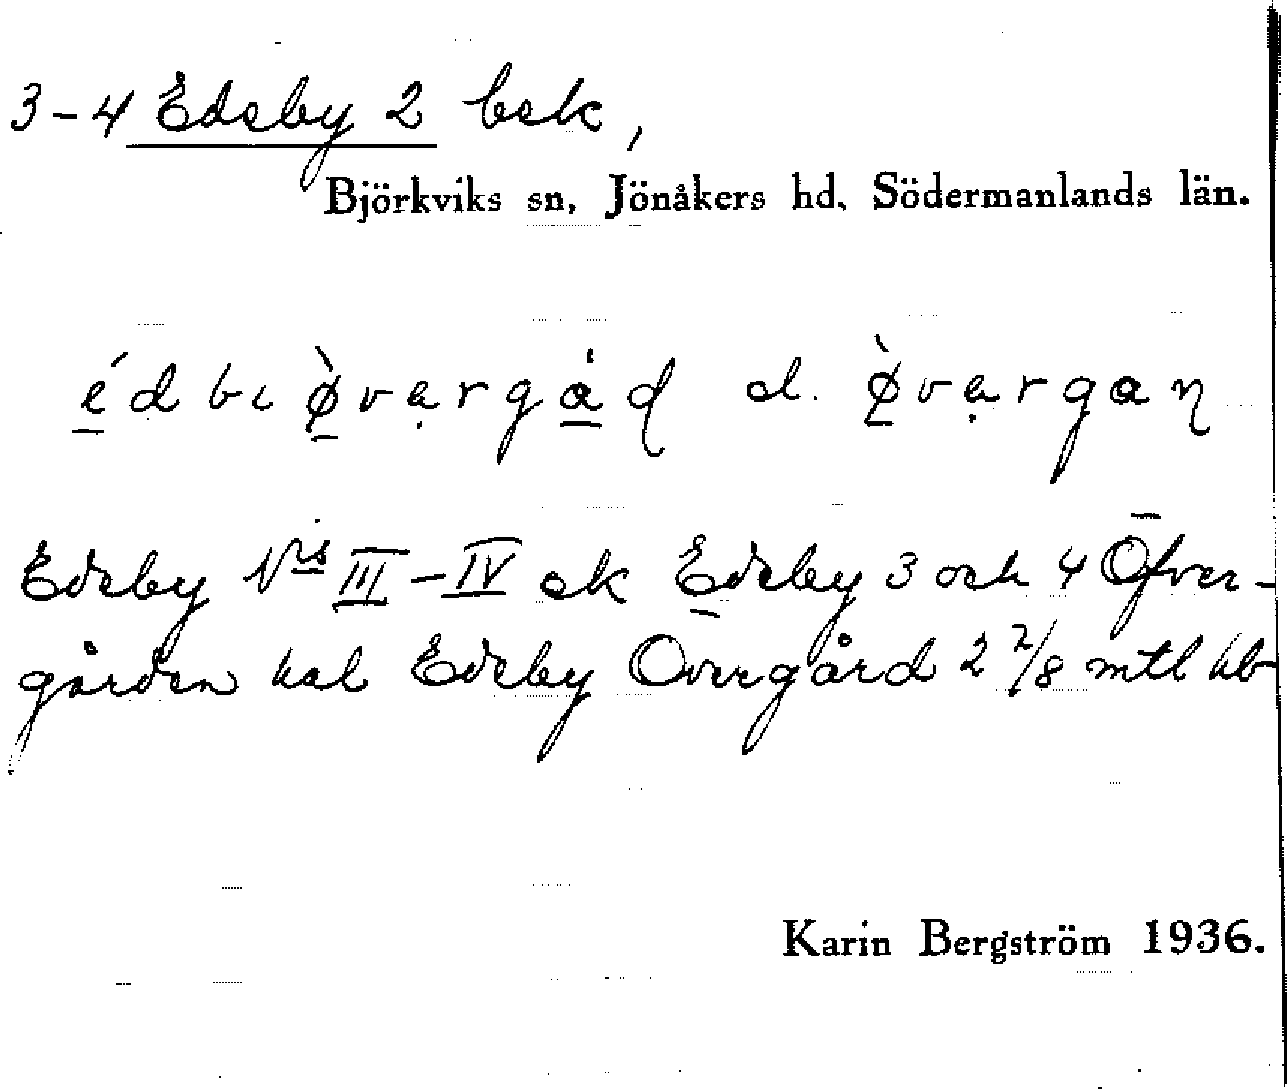 3-4 Edeby 2 bsk,
Björkviks sn, Jönåkers hd, Södermanlands län.
é̲dbi ø̲̀vạrgå̲d d. ø̲̀vạrgaꞃ
Edeby Nris III-IV ek Edeby 3 och 4 Öfver-
gården kal Edeby Övergård 2 2/8 mtl hb
Karin Bergström 1936.